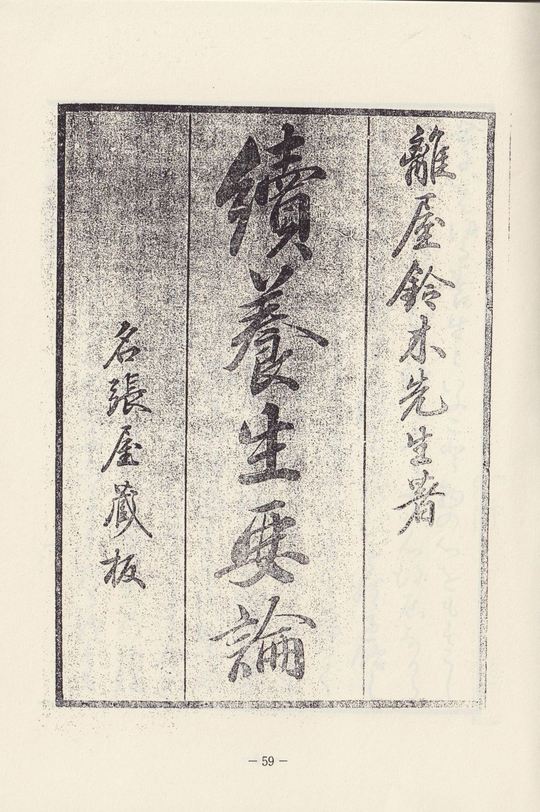 離屋鈴木先生著
續養生要論
名張屋藏板
– 59 –